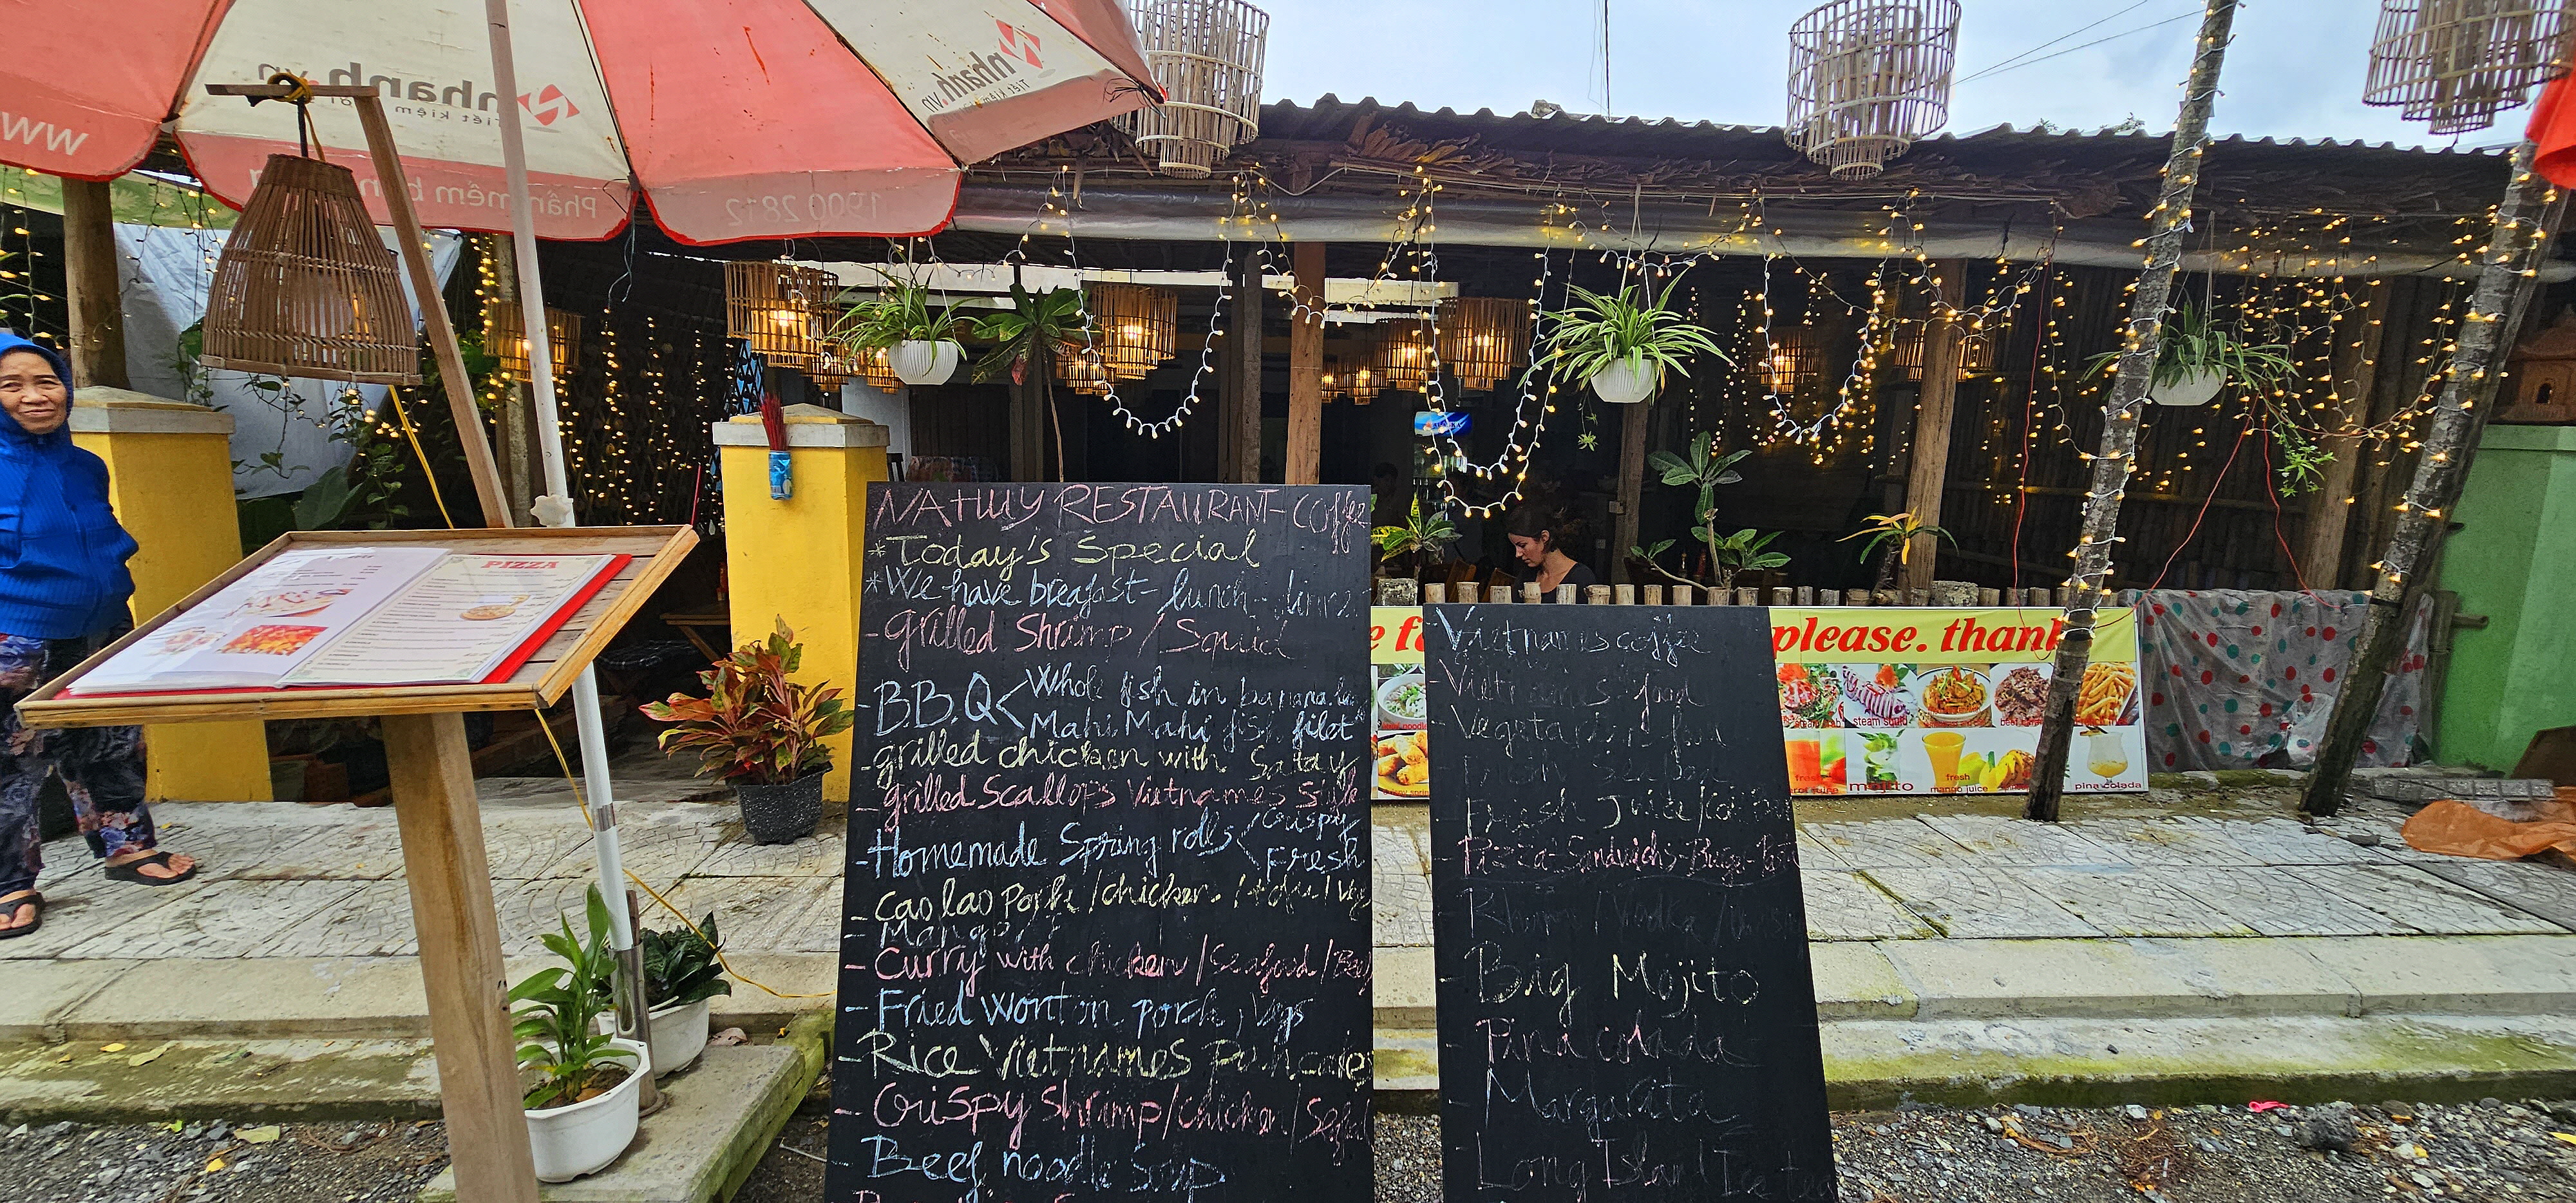 nhanh.vn
Tiết kiệm
nhanh.vn
Tiết kiệm
WW
Phần mềm
1900 2812
PIZZA
NAHUY RESTAURANT-Coffe
*Today's Special
*We have breafast- lunch - dinne
-grilled Shrimp / Squid
-B.B.Q< Whole fish in banana le
Mahi Mahi fish filet
-grilled chicken with Satay
-grilled Scallops Vietnames Style
-Homemade Spring rolls < Crispy
Fresh
-Cao lao Pork /chicken /tofu / Veg
-Mango
-Curry with chicken /Seafood /Bee
-Fried Wonton pork, Vegs
-Rice Vietnames Pancakes
-Crispy Shrimp/chicken/
-Beef noodle Soup
-Vietnames coffee
-Vietnames food
-Vegetables food
Fresh Juice /Co
-Pizza-Sandwichs-Burger-Past
-Rhum /Vodka /
-Big Mojito
-Pina colada
-Margarita
-Long Island Ice tea
please. thank
steam squid
mojito
fresh
mango juice
pina colada